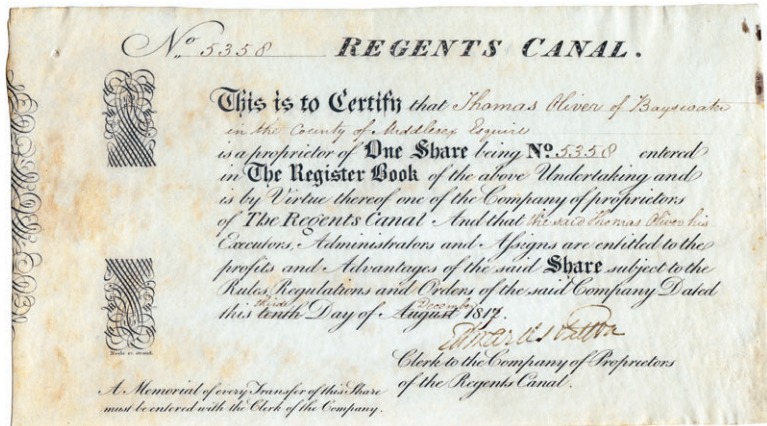 No. 5358 REGENTS CANAL.
This is to Certify that Thomas Oliver of Bayswater
in the County of Middlesex Esquire
is a proprietor of One Share being No. 5358 entered
in The Register Book of the above Undertaking and
is by Virtue thereof one of the Company of proprietors
of The Regents Canal And that the said Thomas Oliver his
Executors, Administrators and Assigns are entitled to the
profits and Advantages of the said Share subject to the
Rules Regulations and Orders of the said Company Dated
third December
this tenth Day of August 1817.
Clerk to the Company of Proprietors
of the Regents Canal.
A Memorial of every Transfer of this Share
must be entered with the Clerk of the Company.